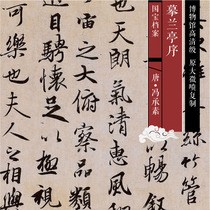 博物馆高清级 原大微喷复制
摹兰亭序
唐·冯承素
国宝档案
絲竹管
暢叙
也天朗氣清惠風
之大俯察品類
騁懷足以
可樂也夫